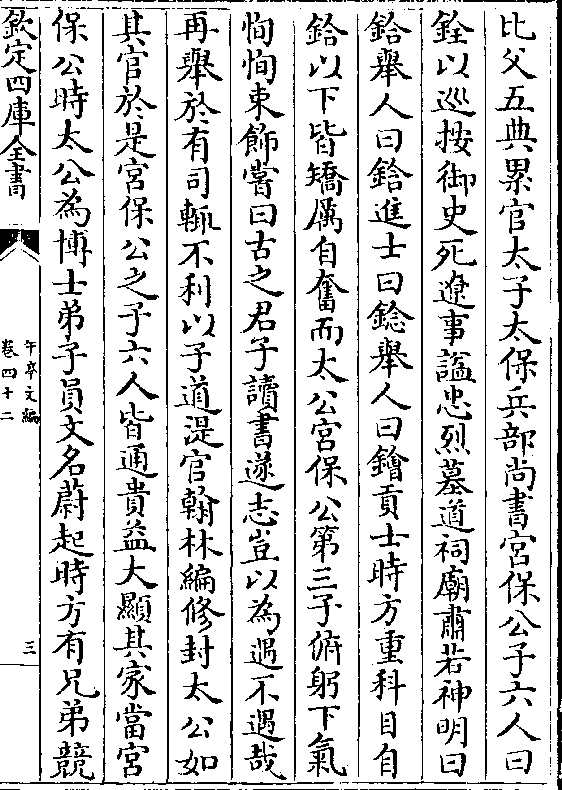 比父五典累官太子太保兵部尚書宮保公子六人曰
銓以巡按御史死遼事諡忠烈墓道祠廟肅若神明曰
鉿舉人曰鎑進士曰鍃舉人曰鐕貢士時方重科目自
鉿以下皆矯厲自奮而太公宮保公第三子俯躬下氣
恂恂束飾嘗曰古之君子讀書遂志豈以為遇不遇哉
再舉於有司輒不利以子道湜官翰林編修封太公如
其官於是宮保公之子六人皆通貴益大顯其家當宮
保公時太公為博士弟子員文名蔚起時方有兄弟競
欽定四庫全書
午亭文編
卷四十二
三